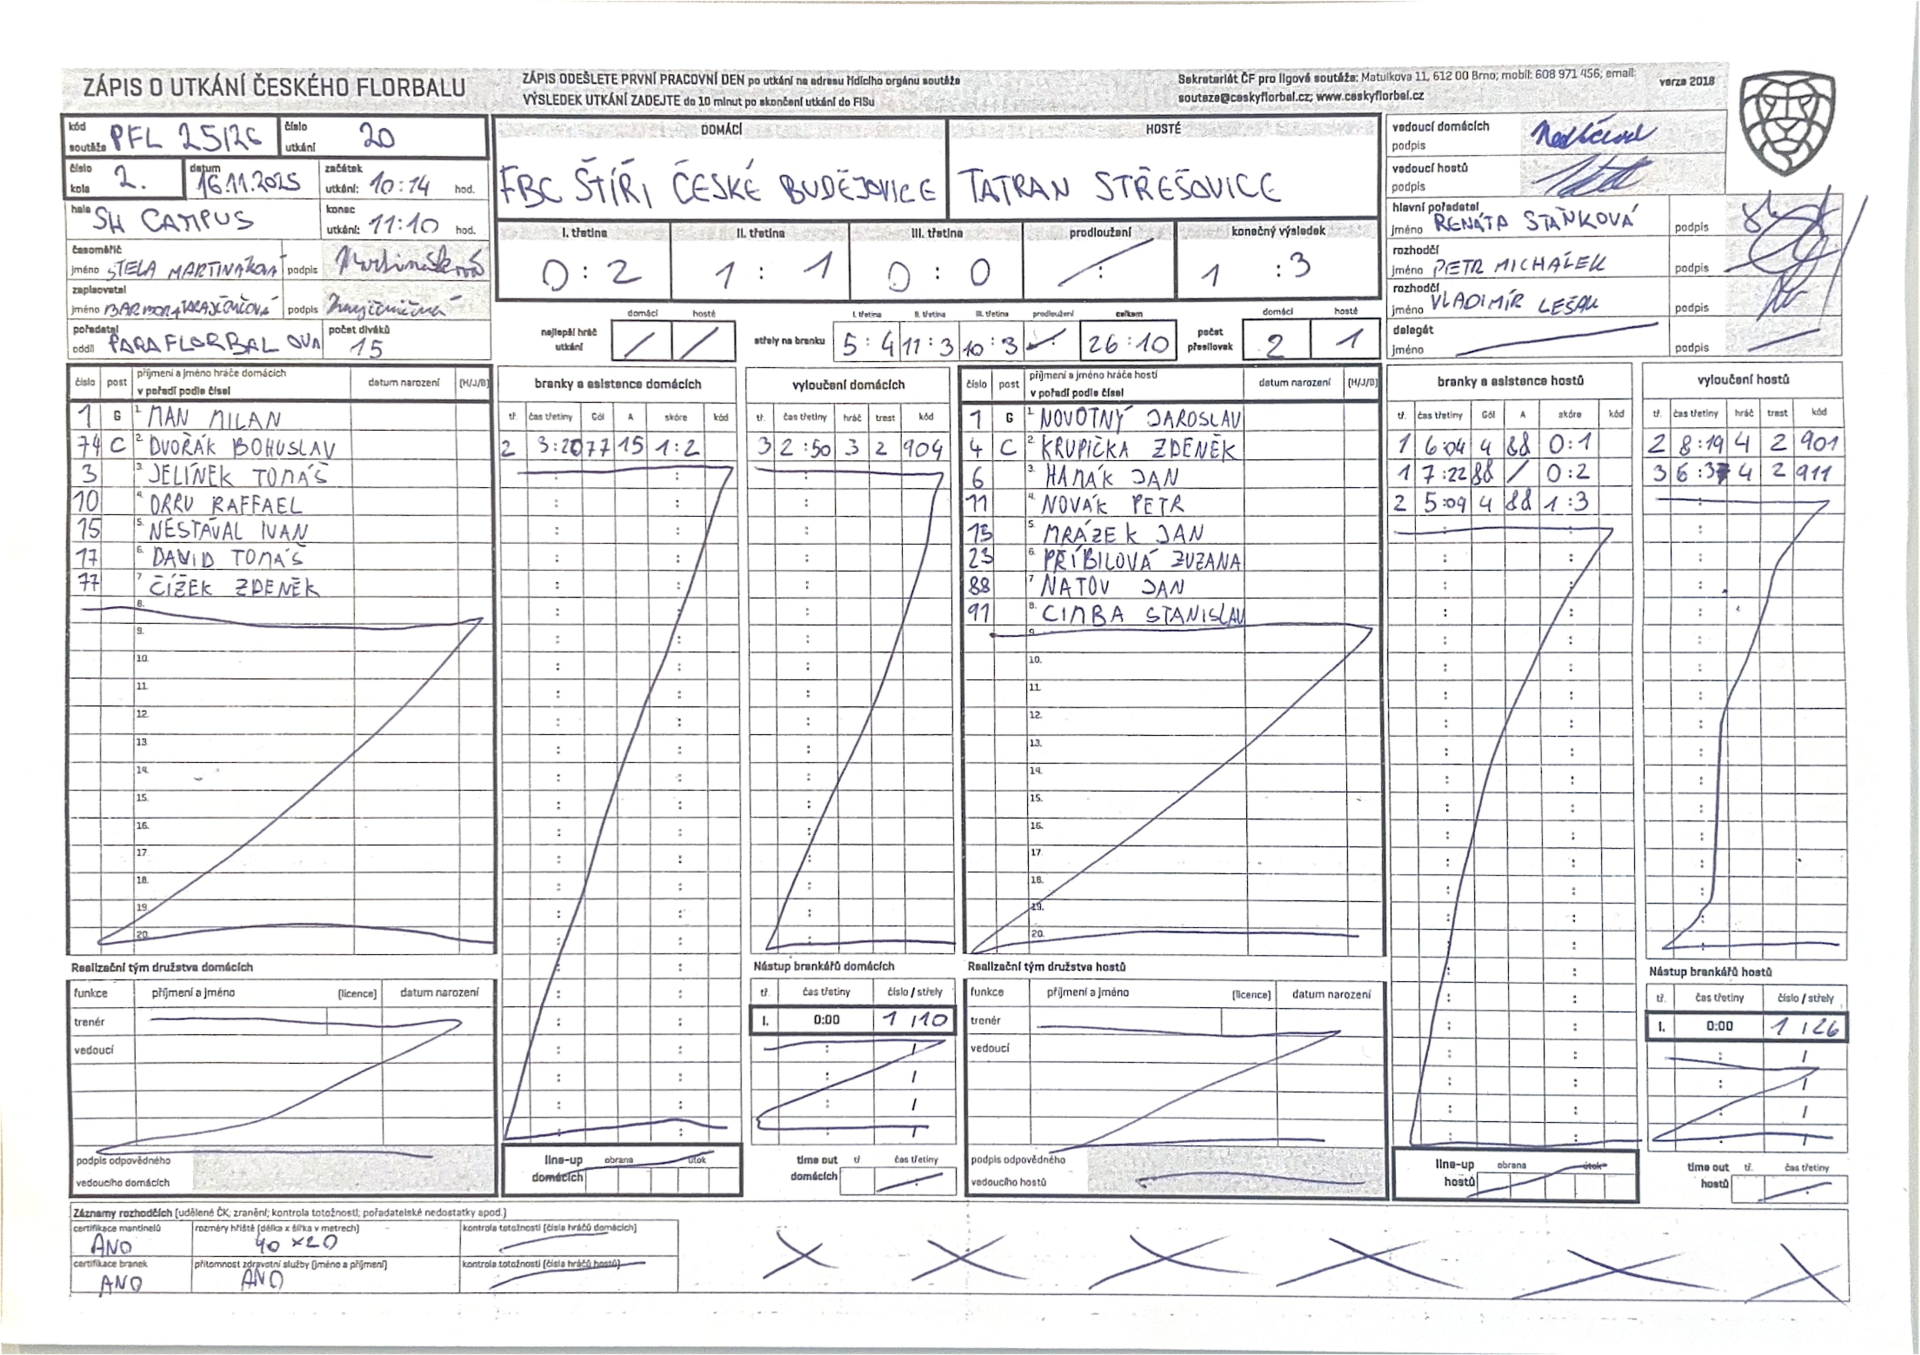 ZÁPIS O UTKÁNÍ ČESKÉHO FLORBALU
ZÁPIS ODEŠLETE PRVNÍ PRACOVNÍ DEN po utkání na adresu řídícího orgánu soutěže
VÝSLEDEK UTKÁNÍ ZADEJTE do 10 minut po skončení utkání do FISu
Sekretariát ČF pro ligové soutěže: Matulkova 11, 612 00 Brno; mobil: 608 971 456; email:
soutaze@ceskyflorbal.cz; www.ceskyflorbal.cz
verze 2018
kód soutěže PFL 25/26
číslo utkání 20
číslo kola 2.
datum 16.11.2025
začátek utkání: 10:14 hod.
hala SH CAMPUS
konec utkání: 11:10 hod.
časoměřič
jméno STELA MARTINÁKOVÁ podpis
zapisovatel
jméno podpis
pořadatel oddíl PARAFLORBAL OVA
počet diváků 15
DOMÁCÍ
FBC ŠTÍŘI ČESKÉ BUDĚJOVICE
HOSTÉ
TATRAN STŘEŠOVICE
I. třetina II. třetina III. třetina prodloužení konečný výsledek
0:2 1:1 0:0 : 1:3
domácí hosté
nejlepší hráč utkání
I. třetina II. třetina III. třetina prodloužení celkem
střely na branku 5:4 11:3 10:3 : 26:10
domácí hosté
počet přesilovek 2 1
vedoucí domácích
podpis
vedoucí hostů
podpis
hlavní pořadatel
jméno RENÁTA STAŇKOVÁ podpis
rozhodčí
jméno PETR MICHÁLEK podpis
rozhodčí
jméno VLADIMÍR LEŠAK podpis
delegát
jméno podpis
číslo post příjmení a jméno hráče domácích v pořadí podle čísel datum narození (H/J/B)
1 G 1. MAN MILAN
74 C 2. DVOŘÁK BOHUSLAV
3 3. JELÍNEK TOMÁŠ
10 4. ORRU RAFFAEL
15 5. NESTÁVAL IVAN
17 6. DAVID TOMÁŠ
77 7. ČÍŽEK ZDENĚK
8.
9.
10.
11.
12.
13.
14.
15.
16.
17.
18.
19.
20.
branky a asistence domácích
tř. čas třetiny Gól A skóre kód
2 3:20 77 15 1:2
vyloučení domácích
tř. čas třetiny hráč trest kód
3 2:50 3 2 904
číslo post příjmení a jméno hráče hostí v pořadí podle čísel datum narození (H/J/B)
1 G 1. NOVOTNÝ JAROSLAV
4 C 2. KRUPIČKA ZDENĚK
6 3. HANÁK JAN
11 4. NOVÁK PETR
15 5. MRÁZEK JAN
23 6. PŘIBILOVÁ ZUZANA
88 7. NATOV JAN
91 8. CIMBA STANISLAV
9.
10.
11.
12.
13.
14.
15.
16.
17.
18.
19.
20.
branky a asistence hostů
tř. čas třetiny Gól A skóre kód
1 6:04 4 88 0:1
1 7:22 88 / 0:2
2 5:09 4 88 1:3
vyloučení hostů
tř. čas třetiny hráč trest kód
2 8:19 4 2 901
3 6:37 4 2 911
Realizační tým družstva domácích
funkce příjmení a jméno (licence) datum narození
trenér
vedoucí
podpis odpovědného
vedoucího domácích
line-up domácích obrana útok
Nástup brankářů domácích
tř. čas třetiny číslo / střely
I. 0:00 1 / 10
time out domácích tř čas třetiny
Realizační tým družstva hostů
funkce příjmení a jméno (licence) datum narození
trenér
vedoucí
podpis odpovědného
vedoucího hostů
line-up hostů obrana útok
Nástup brankářů hostů
tř. čas třetiny číslo / střely
I. 0:00 1 / 26
time out hostů tř. čas třetiny
Záznamy rozhodčích (udělené ČK; zranění; kontrola totožnosti; pořadatelské nedostatky apod.)
certifikace mantinelů ANO
rozměry hřiště (délka x šířka v metrech) 40 x 20
kontrola totožnosti (čísla hráčů domácích)
certifikace branek ANO
přítomnost zdravotní služby (jméno a příjmení) ANO
kontrola totožnosti (čísla hráčů hostů)